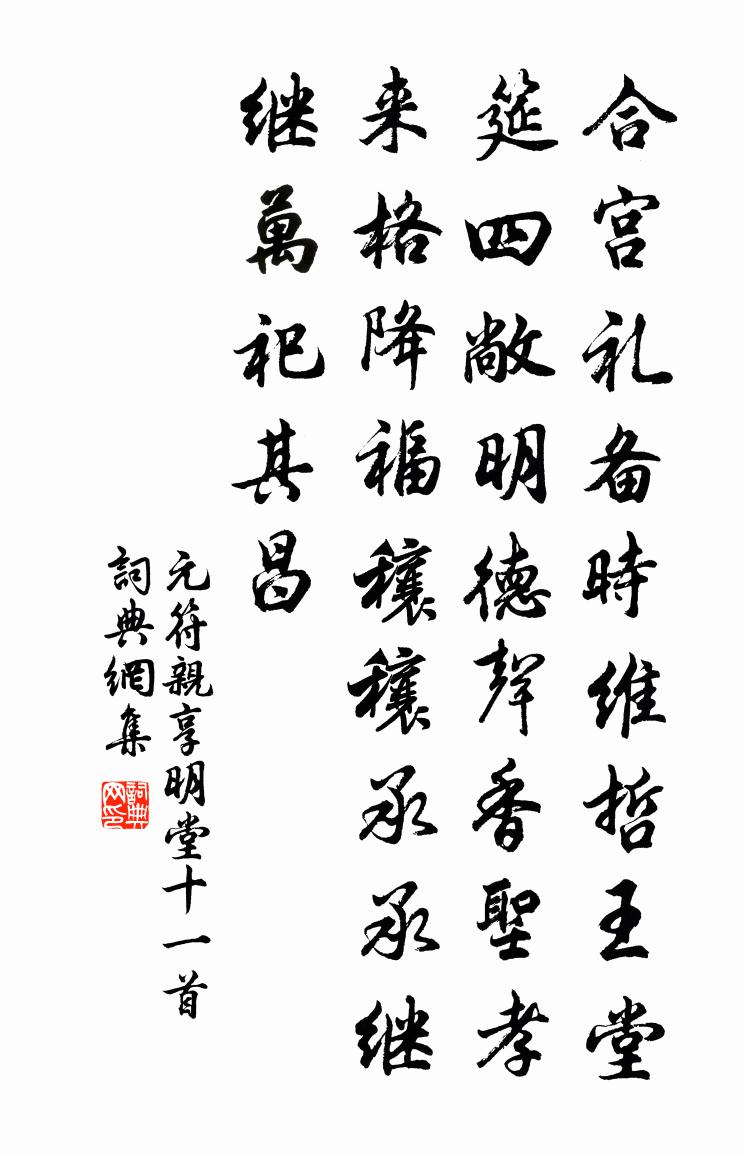 合宫礼备時维哲王堂
筵四敞明德聲香聖孝
来格降福穰穰承承继
继萬祀其昌
元符親享明堂十一首
詞典網集
詞典网印